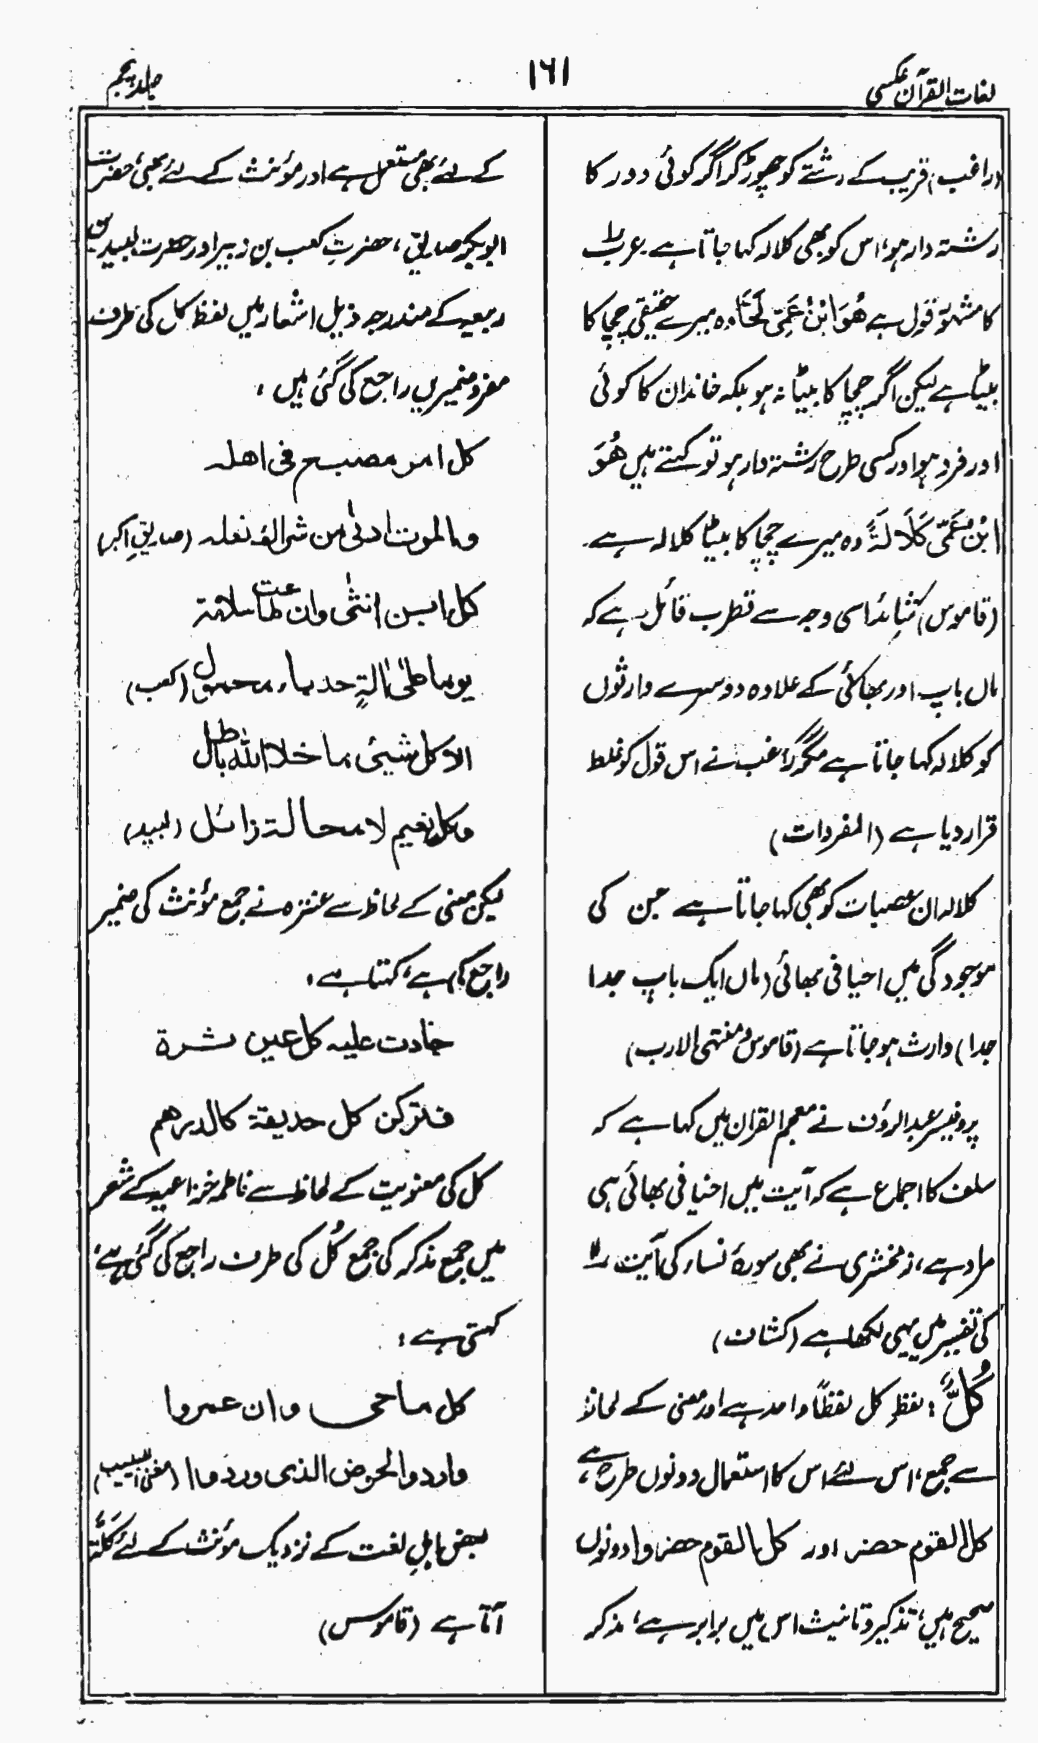 لغات القرآن عکسی
۱۶۱
جلد پنجم
(راغب) قریب کے رشتے کو چھوڑ کر اگر کوئی دور کا
رشتہ دار ہو، اس کو بھی کلالہ کہا جاتا ہے عرب
کا مشہور قول ہے هُوَ ابْنُ عَمِّیْ لَحًّا وہ میرے حقیقی چچا کا
بیٹا ہے لیکن اگر چچا کا بیٹا نہ ہو بلکہ خاندان کا کوئی
اور فرد ہو اور کسی طرح رشتہ دار ہو تو کہتے ہیں هُوَ
ابْنُ عَمِّیْ کَلَالَةً وہ میرے چچا کا بیٹا کلالہ ہے۔
(قاموس) شاید اسی وجہ سے قطرب قائل ہے کہ
ماں باپ اور بھائی کے علاوہ دوسرے وارثوں
کو کلالہ کہا جاتا ہے مگر راغب نے اس قول کو غلط
قرار دیا ہے (المفردات)
کلالہ ان عصبات کو بھی کہا جاتا ہے جن کی
موجودگی میں اخیافی بھائی (ماں ایک باپ جدا
جدا) وارث ہو جاتا ہے (قاموس و منتہی الارب)
پروفیسر عبدالرؤف نے معجم القرآن میں کہا ہے کہ
سلف کا اجماع ہے کہ آیت میں اخیافی بھائی ہی
مراد ہے، زمخشری نے بھی سورۂ نساء کی آیت
کی تفسیر میں یہی لکھا ہے (کشاف)
کُلٌّ : لفظِ کل لفظاً واحد ہے اور معنی کے لحاظ
سے جمع، اس لئے اس کا استعمال دونوں طرح ہے،
کل القوم حضر اور کل القوم حضروا دونوں
صحیح ہیں، تذکیر و تانیث اس میں برابر ہے، مذکر
کے لئے بھی مستعمل ہے اور مؤنث کے لئے بھی، حضرت
ابوبکر صدیق، حضرت کعب بن زہیر اور حضرت لبید بن
ربیعہ کے مندرجہ ذیل اشعار میں لفظ کل کی طرف
مفرد ضمیریں راجع کی گئی ہیں ،
کل امر مصبح فی اهله
والموت ادنی من شراك نعله (صدیقِ اکبر)
کل ابن انثی وان طالت سلامته
یوما علی آلةٍ حدباء محمول (کعب)
الا کل شیئی ما خلا الله باطل
وکل نعیم لا محالة زائل (لبید)
لیکن معنی کے لحاظ سے عنترہ نے جمع مؤنث کی ضمیر
راجع کی ہے، کہتا ہے،
جادت علیه کل عین ثرة
فترکن کل حدیقة کالدرهم
کل کی معنویت کے لحاظ سے فاطمہ خزاعیہ کے شعر
میں جمع مذکر کی جمع کُل کی طرف راجع کی گئی ہے،
کہتی ہے :
کل ما حی وان عمروا
واردوا الحوض الذی وردوا (مغنی اللبیب)
بعض اہلِ لغت کے نزدیک مؤنث کے لئے کُلَّةٌ
آتا ہے (قاموس)